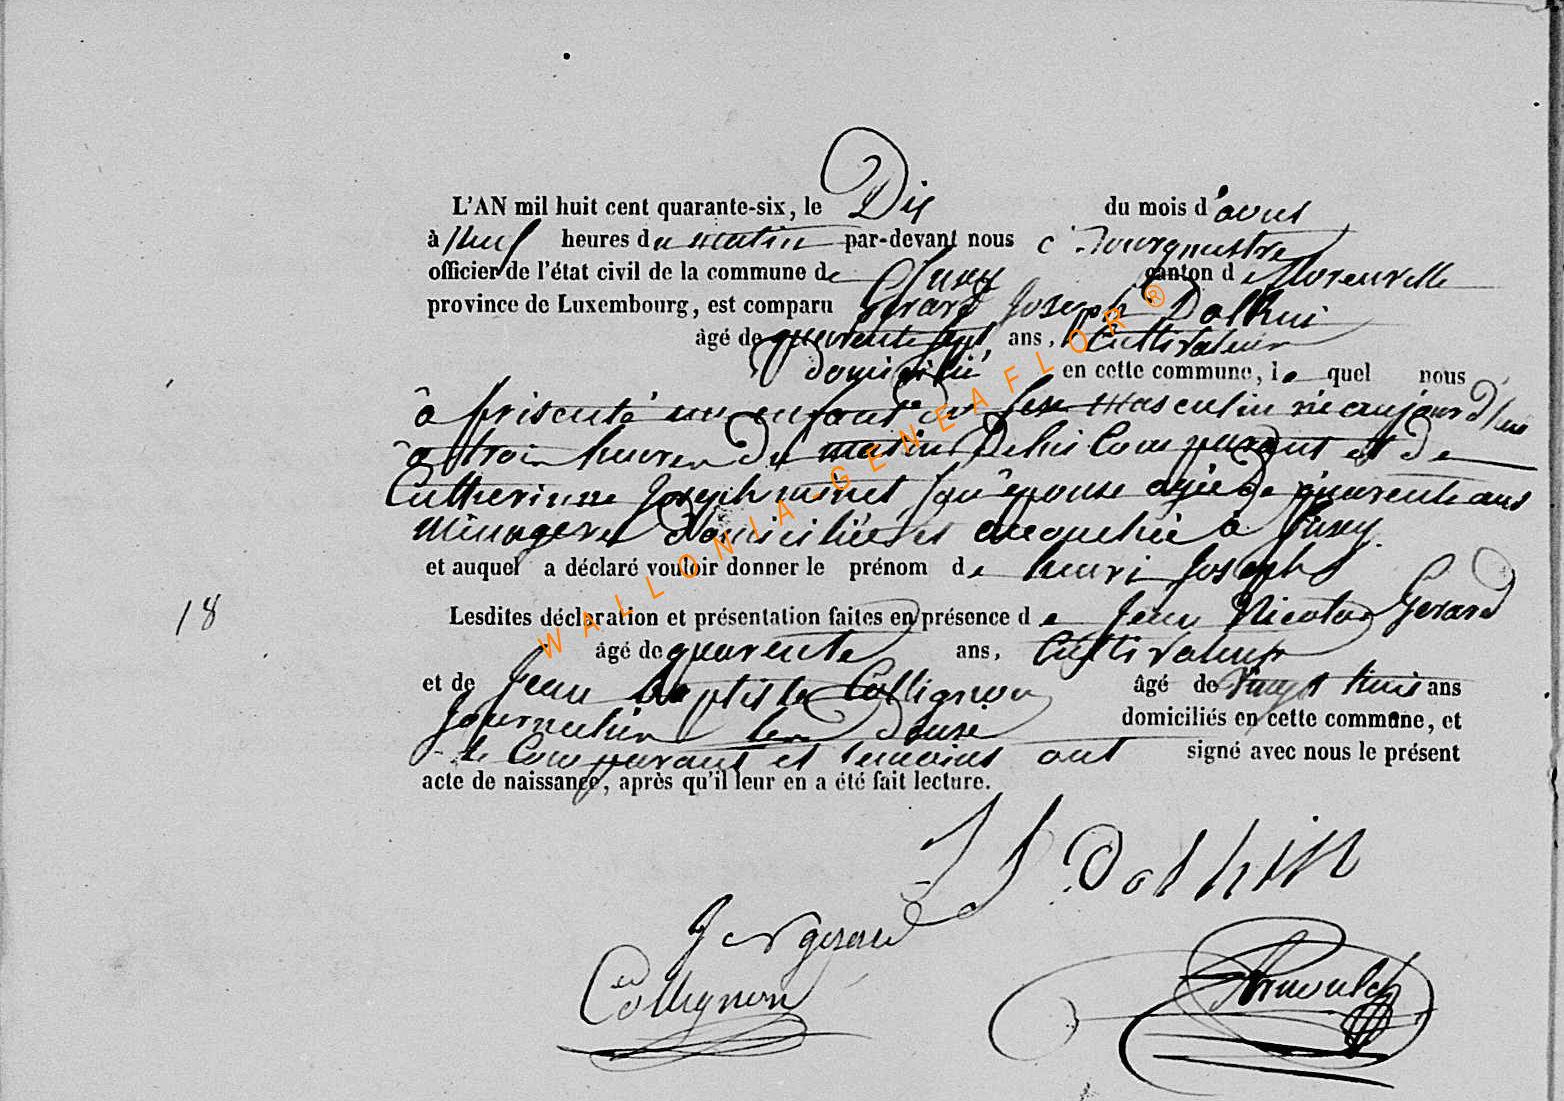 L'AN mil huit cent quarante-six, le Dix du mois d'avril
à neuf heures du matin par-devant nous Bourgmestre
officier de l'état civil de la commune de Jusey canton de florenville
province de Luxembourg, est comparu Gerard Joseph Dalhui
âgé de quarente sept ans, Cultivateur
domicilié en cette commune, le quel nous
à prisenté un enfant de sexe masculin né aujourd'hui
à trois heures du matin De lui Comparant et de
Catherinne Joseph minet, sa épouse agée de quarente ans
Ménagere domiciliée et accouchée à Jusey
et auquel a déclaré vouloir donner le prénom de henri Joseph
18
Lesdites déclaration et présentation faites en présence de Jean Nicolas Gerard
âgé de quarente ans, Cultivateur
et de Jean baptiste Collignon âgé de Vingt huis ans
Journalier les deux domiciliés en cette commune, et
le Comparant et temoins ont signé avec nous le présent
acte de naissance, après qu'il leur en a été fait lecture.
Dalhin
J N gerard
Collignon
WALLONIA-GENEAFLOR®